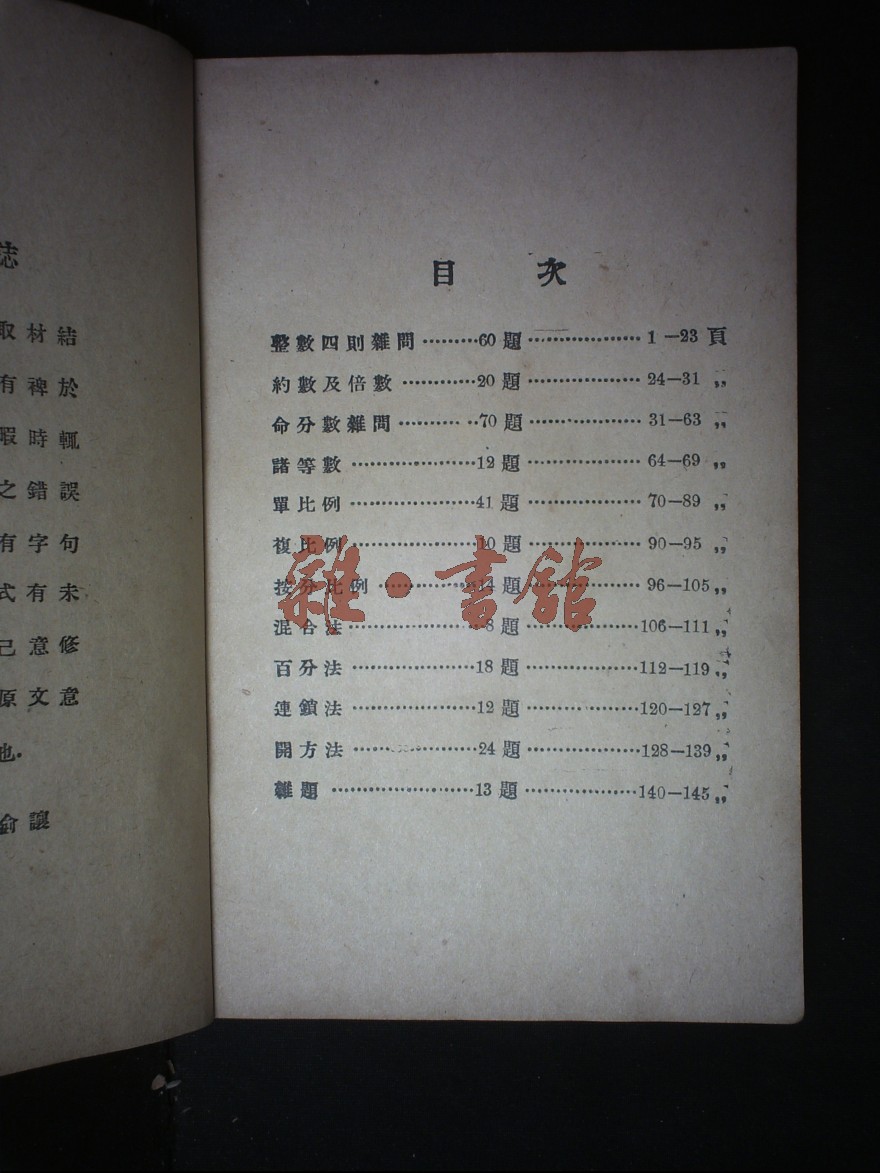 誌
取材結
有裨於
暇時輒
之錯誤
有字句
式有未
己意修
原文意
他.
俞讓
目 次
整數四則雜問………60題………………1—23頁
約數及倍數…………20題………………24—31〃
命分數雜問…………70題………………31—63〃
諸等數………………12題………………64—69〃
單比例………………41題………………70—89〃
複比例………………10題………………90—95〃
按分比例……………14題………………96—105〃
混合法………………8題………………106—111〃
百分法………………18題………………112—119〃
連鎖法………………12題………………120—127〃
開方法………………24題………………128—139〃
雜題…………………13題………………140—145〃
雜·書館